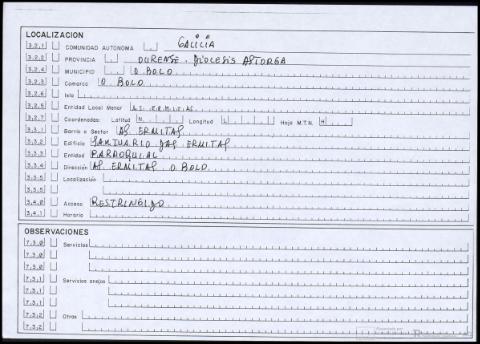 LOCALIZACION
3.2.1 COMUNIDAD AUTONOMA GALICIA
3.2.2 PROVINCIA OURENSE. DIOCESIS ASTORGA
3.2.4 MUNICIPIO O BOLO
3.2.3 Comarca O BOLO
3.2.6 Isla
3.2.5 Entidad Local Menor AS ERMITAS
3.2.7 Coordenadas: Latitud N Longitud L Hoja M.T.N. H
3.3.1 Barrio o Sector AS ERMITAS
3.3.2 Edificio SANTUARIO DAS ERMITAS
3.3.3 Entidad PARROQUIAL
3.3.4 Dirección AS ERMITAS O BOLO
3.3.5 Localización
3.3.5
3.4.0 Acceso RESTRINGIDO
3.4.1 Horario
OBSERVACIONES
7.3.0 Servicios
7.3.0
7.3.0
7.3.1 Servicios anejos
7.3.1
7.3.1
7.3.2 Otros
7.3.2